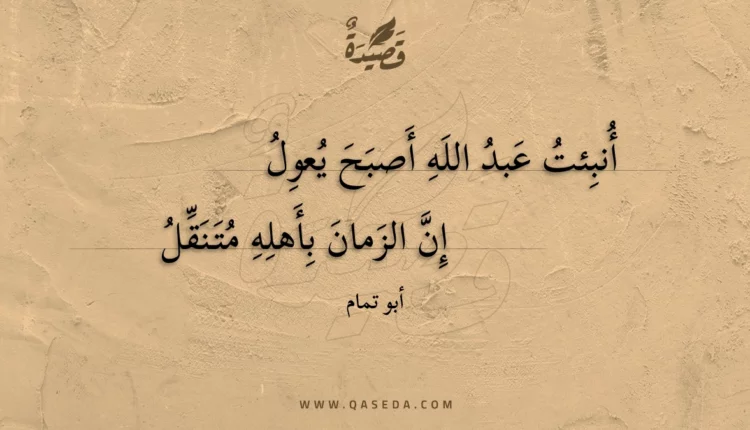 قَصِيْدَةٌ
أُنبِئتُ عَبدُ اللَهِ أَصبَحَ يُعوِلُ
إِنَّ الزَمانَ بِأَهلِهِ مُتَنَقِّلُ
أبو تمام
WWW.QASEDA.COM